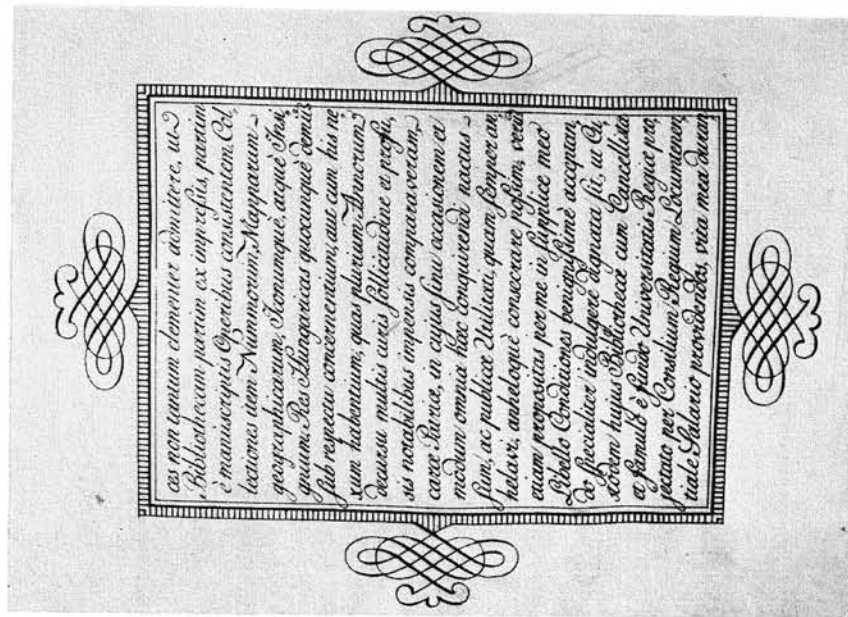 ces non tantum clementer admittere, ut
Bibliothecam partim ex impreſsis, partim
è manuscriptis Operibus consistentem, Col,
lectiones item Nummorum, Mapparum
geographicarum, Iconumquè, atquè Insi,
gnium, Res Hungaricas quocunquè demùm
ſub respectu concernentium, aut cum his ne
xum habentium, quas plurium Annorum
decursu multis curis ſollicitudine et profu,
sis notabilibus impensis comparaveram,
caræ Patriæ, in cujus ſinu occasionem et
modum omnia hæc conquirendi nactus
ſum, ac publicæ Utilitati, quam ſemper an,
helavi, anheloquè consecrare poſsim, verùm
etiam propositas per me in ſupplice meo
Libello Conditiones benigniſsimè acceptan,
do ſpecialiter indulgere dignata ſit, ut Cu,
stodem hujus Bibliothecæ cum Cancellista
et famulo è fundo Universitatis Regiæ pro,
jectato per Consilium Regium Locumtenen,
tiale Salario providendos, vita mea duran,